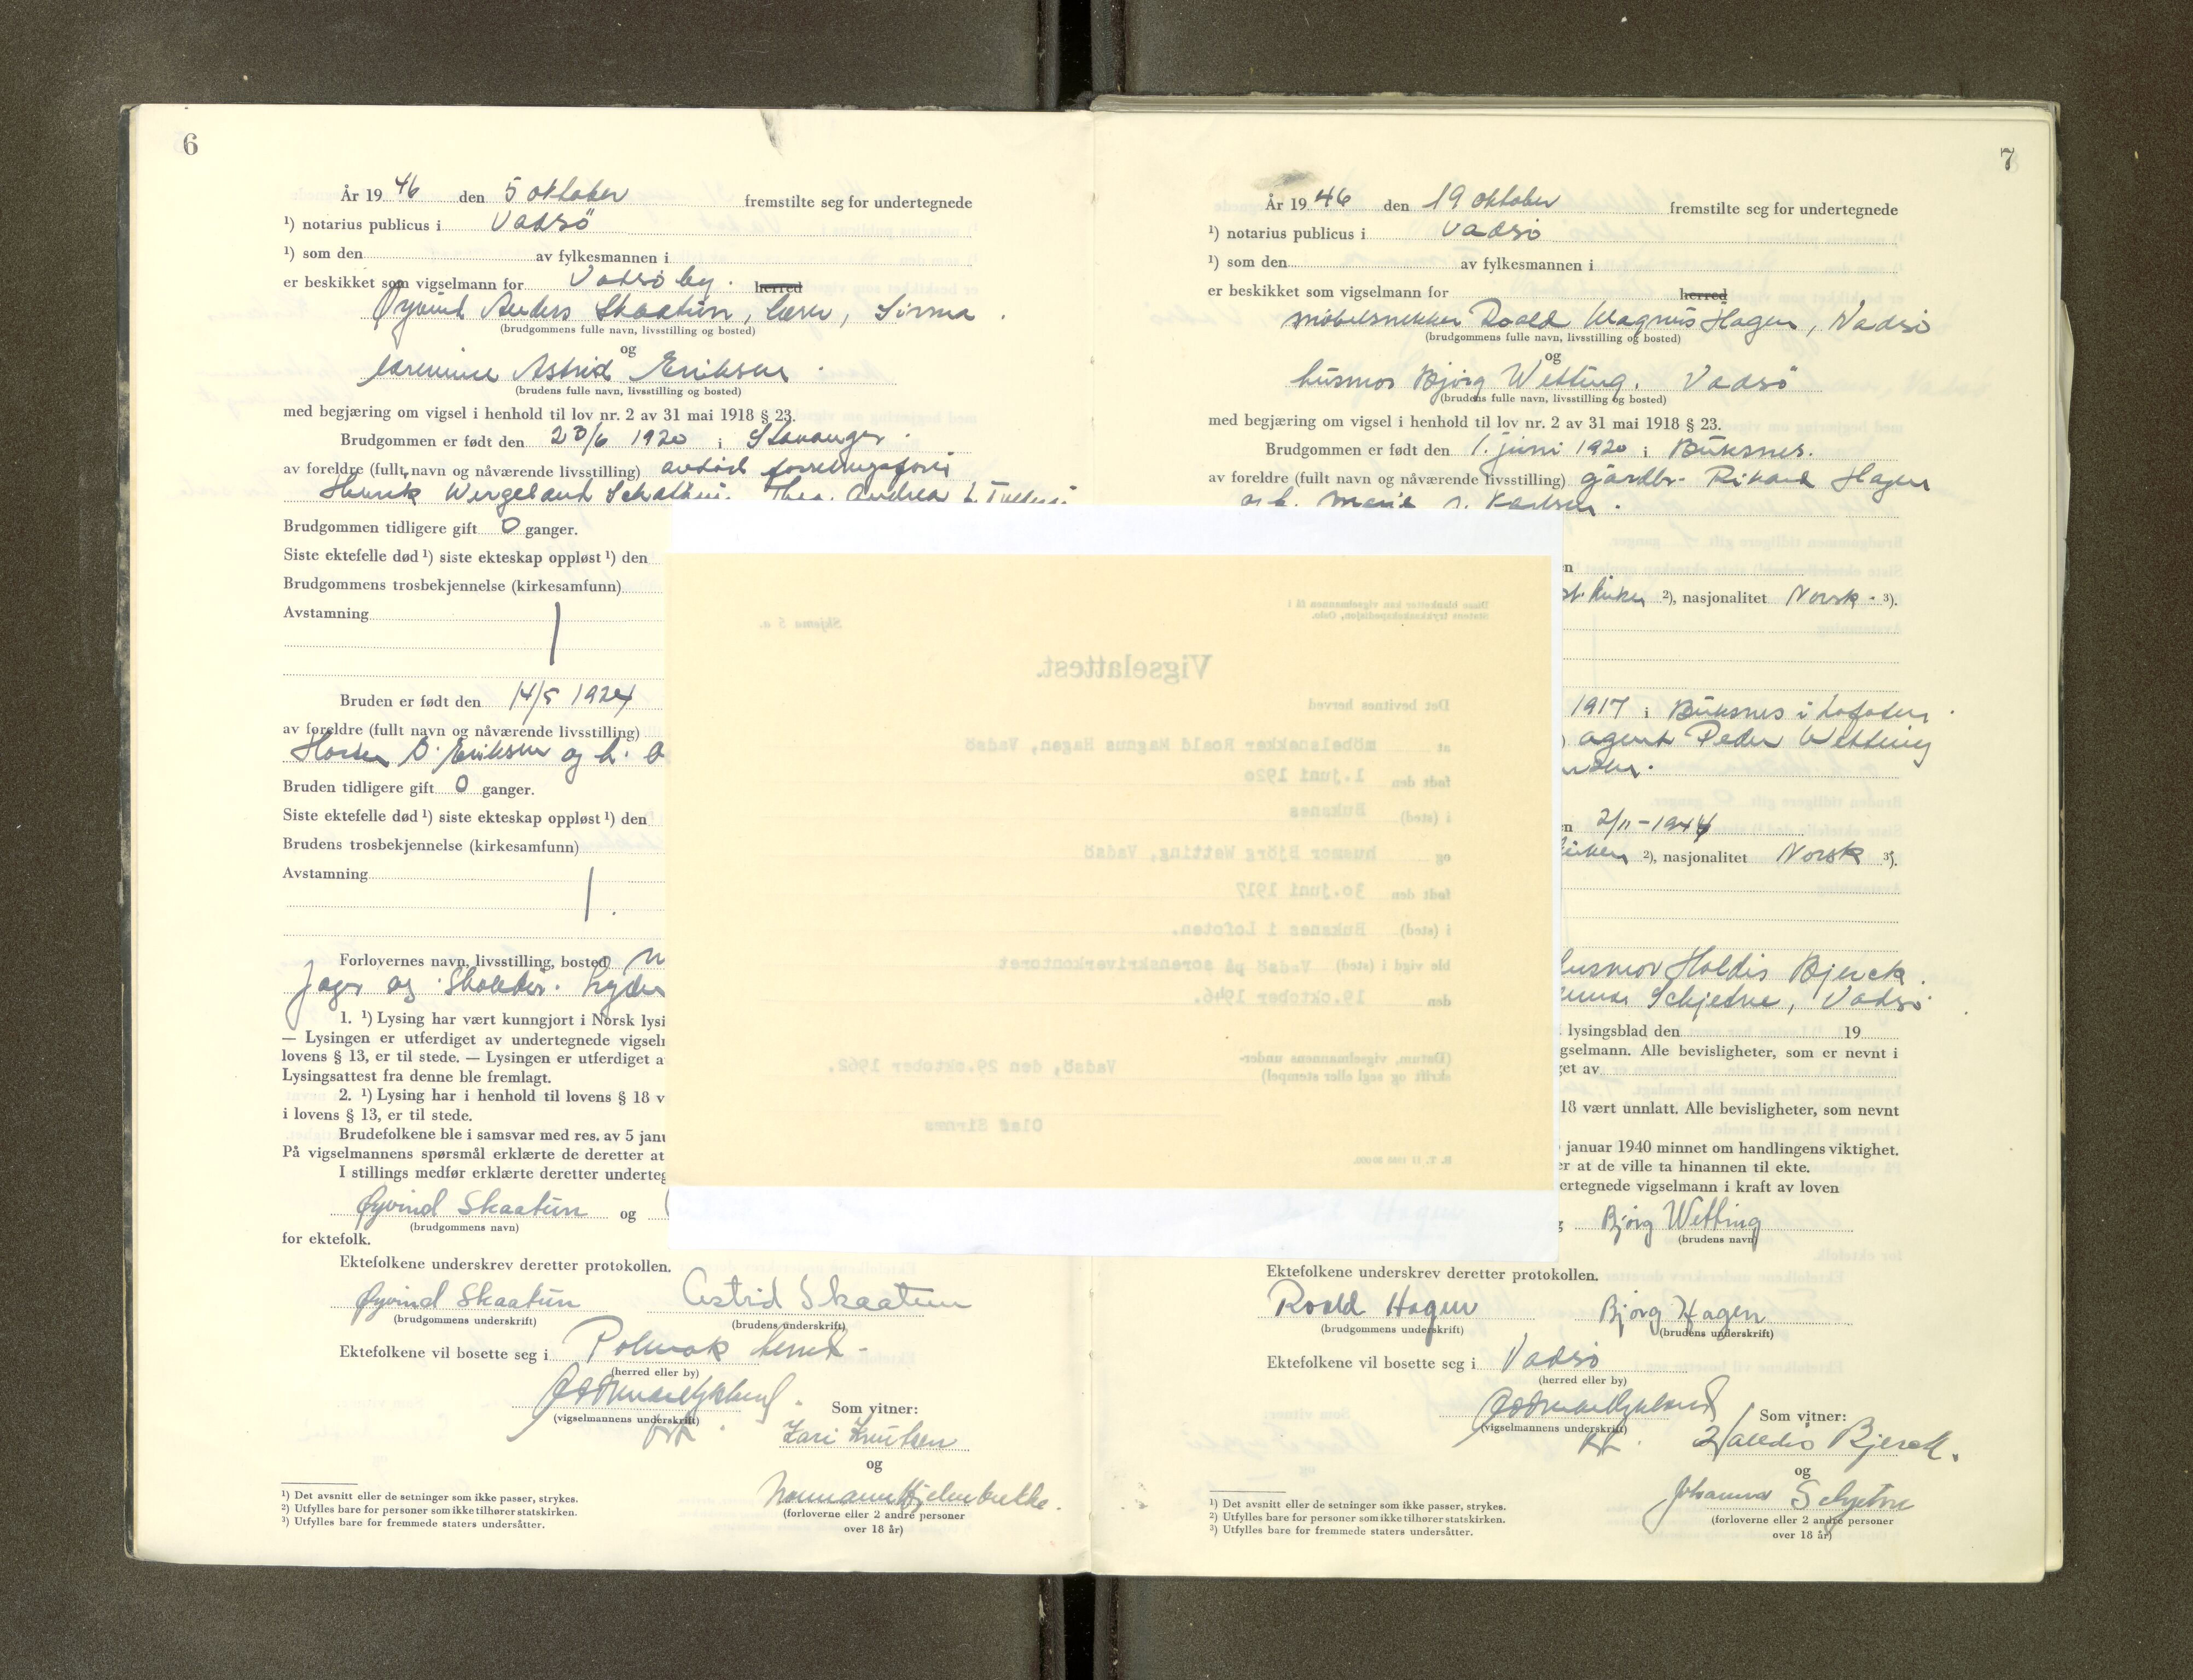 6
År 19 46 den 5 oktober fremstilte seg for undertegnede
¹) notarius publicus i Vadsö
¹) som den av fylkesmannen i
er beskikket som vigselmann for Vadsö by. herred
Øyvind Anders Skaatun, lærer, Sirma.
(brudgommens fulle navn, livsstilling og bosted)
og
lærerinne Astrid Eriksen.
(brudens fulle navn, livsstilling og bosted)
med begjæring om vigsel i henhold til lov nr. 2 av 31 mai 1918 § 23.
Brudgommen er født den 23/6 1920 i Stavanger.
av foreldre (fullt navn og nåværende livsstilling) avdød
Henrik Wergeland Thea. Andrea
Brudgommen tidligere gift 0 ganger.
Siste ektefelle død ¹) siste ekteskap oppløst ¹) den
Brudgommens trosbekjennelse (kirkesamfunn)
Avstamning
Bruden er født den 14/5 1924
av foreldre (fullt navn og nåværende livsstilling)
O. Eriksen og h.
Bruden tidligere gift 0 ganger.
Siste ektefelle død ¹) siste ekteskap oppløst ¹) den
Brudens trosbekjennelse (kirkesamfunn)
Avstamning
Forlovernes navn, livsstilling, bosted
og
1. ¹) Lysing har vært kunngjort i Norsk lysi
— Lysingen er utferdiget av undertegnede vigsel
lovens § 13, er til stede. — Lysingen er utferdiget a
Lysingsattest fra denne ble fremlagt.
2. ¹) Lysing har i henhold til lovens § 18 v
i lovens § 13, er til stede.
Brudefolkene ble i samsvar med res. av 5 janu
På vigselmannens spørsmål erklærte de deretter at
I stillings medfør erklærte deretter underteg
Øyvind Skaatun og
(brudgommens navn)
for ektefolk.
Ektefolkene underskrev deretter protokollen.
Øyvind Skaatun Astrid Skaatun
(brudgommens underskrift) (brudens underskrift)
Ektefolkene vil bosette seg i Polmak herred.
(herred eller by)
(vigselmannens underskrift) Som vitner:
Kari Knutsen
og
(forloverne eller 2 andre personer
over 18 år)
¹) Det avsnitt eller de setninger som ikke passer, strykes.
²) Utfylles bare for personer som ikke tilhører statskirken.
³) Utfylles bare for fremmede staters undersåtter.
Disse blanketter kan vigselmannen få i
Statens trykksaksekspedisjon, Oslo.
Skjema 5 a.
Vigselattest.
Det bevitnes herved
at möbelsnekker Roald Magnus Hagen, Vadsö
født den 1.juni 1920
i (sted) Buksnes
og husmor Björg Wetting, Vadsö
født den 30.juni 1917
i (sted) Buksnes i Lofoten.
ble vigd i (sted) Vadsö på sorenskriverkontoret
den 19.oktober 1946.
(Datum, vigselmannens under-
skrift og segl eller stempel) Vadsö, den 29.oktober 1962.
Olaf Sirnes
7
År 19 46 den 19 oktober fremstilte seg for undertegnede
¹) notarius publicus i Vadsö
¹) som den av fylkesmannen i
er beskikket som vigselmann for herred
möbelsnekker Roald Magnus Hagen, Vadsö
(brudgommens fulle navn, livsstilling og bosted)
og
husmor Bjørg Wetting. Vadsö
(brudens fulle navn, livsstilling og bosted)
med begjæring om vigsel i henhold til lov nr. 2 av 31 mai 1918 § 23.
Brudgommen er født den 1. juni 1920 i Buksnes.
av foreldre (fullt navn og nåværende livsstilling) gårdbr. Rikard Hagen
og h. Marie Karlsen.
n
st. kirken ²), nasjonalitet Norsk. ³).
1917 i Buksnes i Lofoten.
) agent Peder Wetting
n 2/11-1944
kirken ²), nasjonalitet Norsk ³).
husmor Haldis Bjerck.
Schjetne, Vadsö
lysingsblad den 19
gselmann. Alle bevisligheter, som er nevnt i
get av
18 vært unnlatt. Alle bevisligheter, som nevnt
januar 1940 minnet om handlingens viktighet.
er at de ville ta hinannen til ekte.
ertegnede vigselmann i kraft av loven
g Bjørg Wetting
(brudens navn)
Ektefolkene underskrev deretter protokollen.
Roald Hagen Bjørg Hagen
(brudgommens underskrift) (brudens underskrift)
Ektefolkene vil bosette seg i Vadsö
(herred eller by)
(vigselmannens underskrift) Som vitner:
Halldis Bjerck.
og
Johanna Schjetne
(forloverne eller 2 andre personer
over 18 år)
¹) Det avsnitt eller de setninger som ikke passer, strykes.
²) Utfylles bare for personer som ikke tilhører statskirken.
³) Utfylles bare for fremmede staters undersåtter.